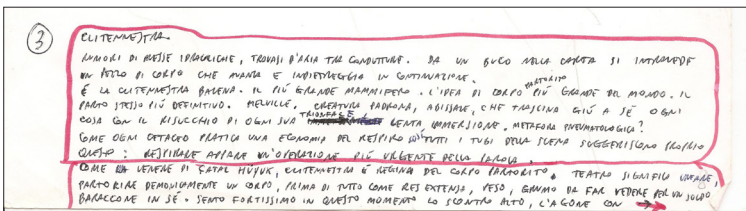 3
CLITENNESTRA.
RUMORI DI PRESSE IDRAULICHE, TROVASI D'ARIA TRA CONDUTTURE. DA UN BUCO NELLA CARTA SI INTRAVEDE
UN PEZZO DI CORPO CHE AVANZA E INDIETREGGIA IN CONTINUAZIONE.
È LA CLITENNESTRA BALENA. IL PIÙ GRANDE MAMMIFERO. L'IDEA DI CORPO PARTORITO PIÙ GRANDE DEL MONDO. IL
PARTO STESSO PIÙ DEFINITIVO. MELVILLE. CREATURA PADRONA, ABISSALE, CHE TRASCINA GIÙ A SÉ OGNI
COSA CON IL RISUCCHIO DI OGNI SUA TRIONFALE LENTA IMMERSIONE. METAFORA PNEUMATOLOGICA?
COME OGNI CETACEO PRATICA UNA ECONOMIA DEL RESPIRO TUTTI I TUBI DELLA SCENA SUGGERISCONO PROPRIO
QUESTO: RESPIRARE APPARE UN'OPERAZIONE PIÙ URGENTE DELLA PAROLA.
COME LA VENERE DI ÇATAL HUYUK, CLITENNESTRA È REGINA DEL CORPO PARTORITO. TEATRO SIGNIFICA
PARTORIRE DEMONIAMENTE UN CORPO, PRIMA DI TUTTO COME RES EXTENSA, PESO, GRUMO DA FAR VEDERE PER UN SOLDO
BARACCONE IN SÉ. SENTO FORTISSIMO IN QUESTO MOMENTO LO SCONTRO ALTO, L'AGONE CON